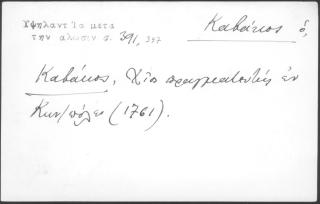 Ὑψηλαντ Τα μετα
την αλωσιν σ. 391, 397
Καβάκος ὁ,
Καβάκος, Χῖος πραγματευτής ἐν
Κων/πόλει (1761).